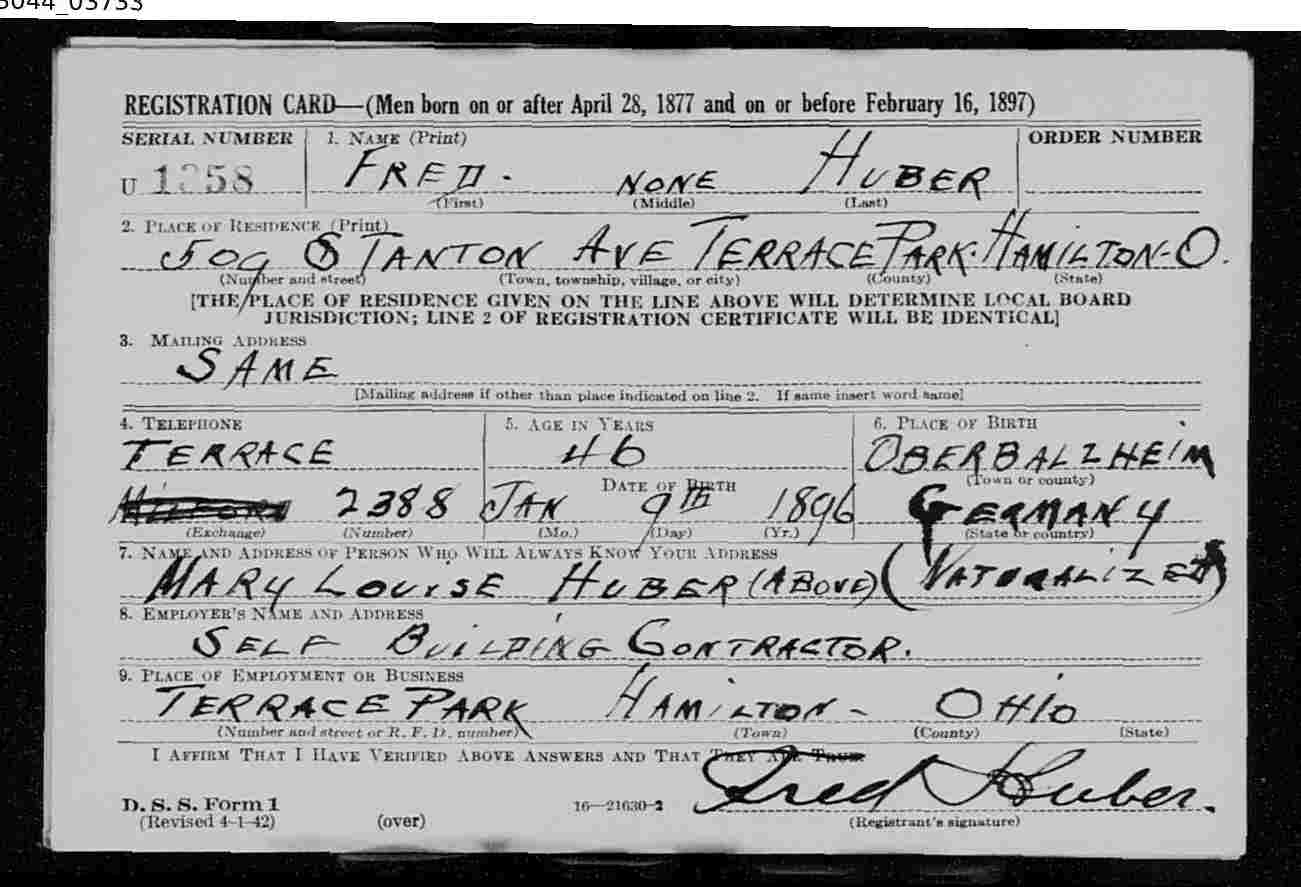 REGISTRATION CARD—(Men born on or after April 28, 1877 and on or before February 16, 1897)
SERIAL NUMBER 1. NAME (Print) ORDER NUMBER
U FRED. NONE HUBER
(First) (Middle) (Last)
2. PLACE OF RESIDENCE (Print)
509 STANTON AVE TERRACE PARK. HAMILTON-O.
(Number and street) (Town, township, village, or city) (County) (State)
[THE PLACE OF RESIDENCE GIVEN ON THE LINE ABOVE WILL DETERMINE LOCAL BOARD
JURISDICTION; LINE 2 OF REGISTRATION CERTIFICATE WILL BE IDENTICAL]
3. MAILING ADDRESS
SAME
[Mailing address if other than place indicated on line 2. If same insert word same]
4. TELEPHONE 5. AGE IN YEARS 6. PLACE OF BIRTH
TERRACE 46 OBERBALZHEIM
DATE OF BIRTH (Town or county)
MILFORD 2388 JAN 9TH 1896 GERMANY
(Exchange) (Number) (Mo.) (Day) (Yr.) (State or country)
7. NAME AND ADDRESS OF PERSON WHO WILL ALWAYS KNOW YOUR ADDRESS
MARY LOUISE HUBER (ABOVE) (NATURALIZED)
8. EMPLOYER'S NAME AND ADDRESS
SELF BUILDING CONTRACTOR.
9. PLACE OF EMPLOYMENT OR BUSINESS
TERRACE PARK HAMILTON - OHIO
(Number and street or R. F. D. number) (Town) (County) (State)
I AFFIRM THAT I HAVE VERIFIED ABOVE ANSWERS AND THAT THEY ARE TRUE.
Fred Huber.
D. S. S. Form 1
(Revised 4-1-42) (over) 16—21630-2 (Registrant's signature)